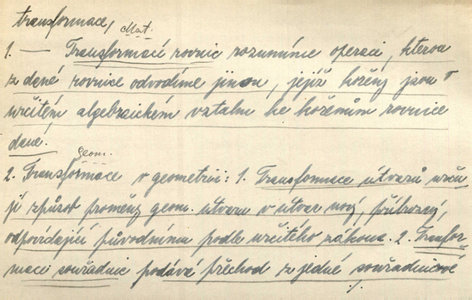 transformace, Mat.
1. — Transformací rovnic rozumíme operaci, kterou
z dané rovnice odvodíme jinou, jejíž kořeny jsou v
určitém algebraickém vztahu ke kořenům rovnice
dané.
geom.
2. Transformace v geometrii: 1. Transformace útvarů urču-
jí způsob proměny geom. útvaru v útvar nový, příbuzný,
odpovídající původnímu podle určitého zákona. 2. Transfor-
maci souřadnic podává přechod z jedné souřadnicové